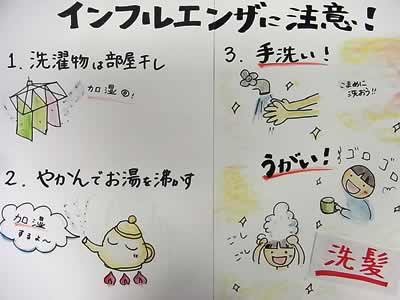 インフルエンザに注意!
1. 洗濯物は部屋干し
加湿
2. やかんでお湯を沸かす
加湿
するよ～
3. 手洗い!
こまめに
洗おう!!
うがい!
ゴロゴロ
ごし
ごし
洗髪